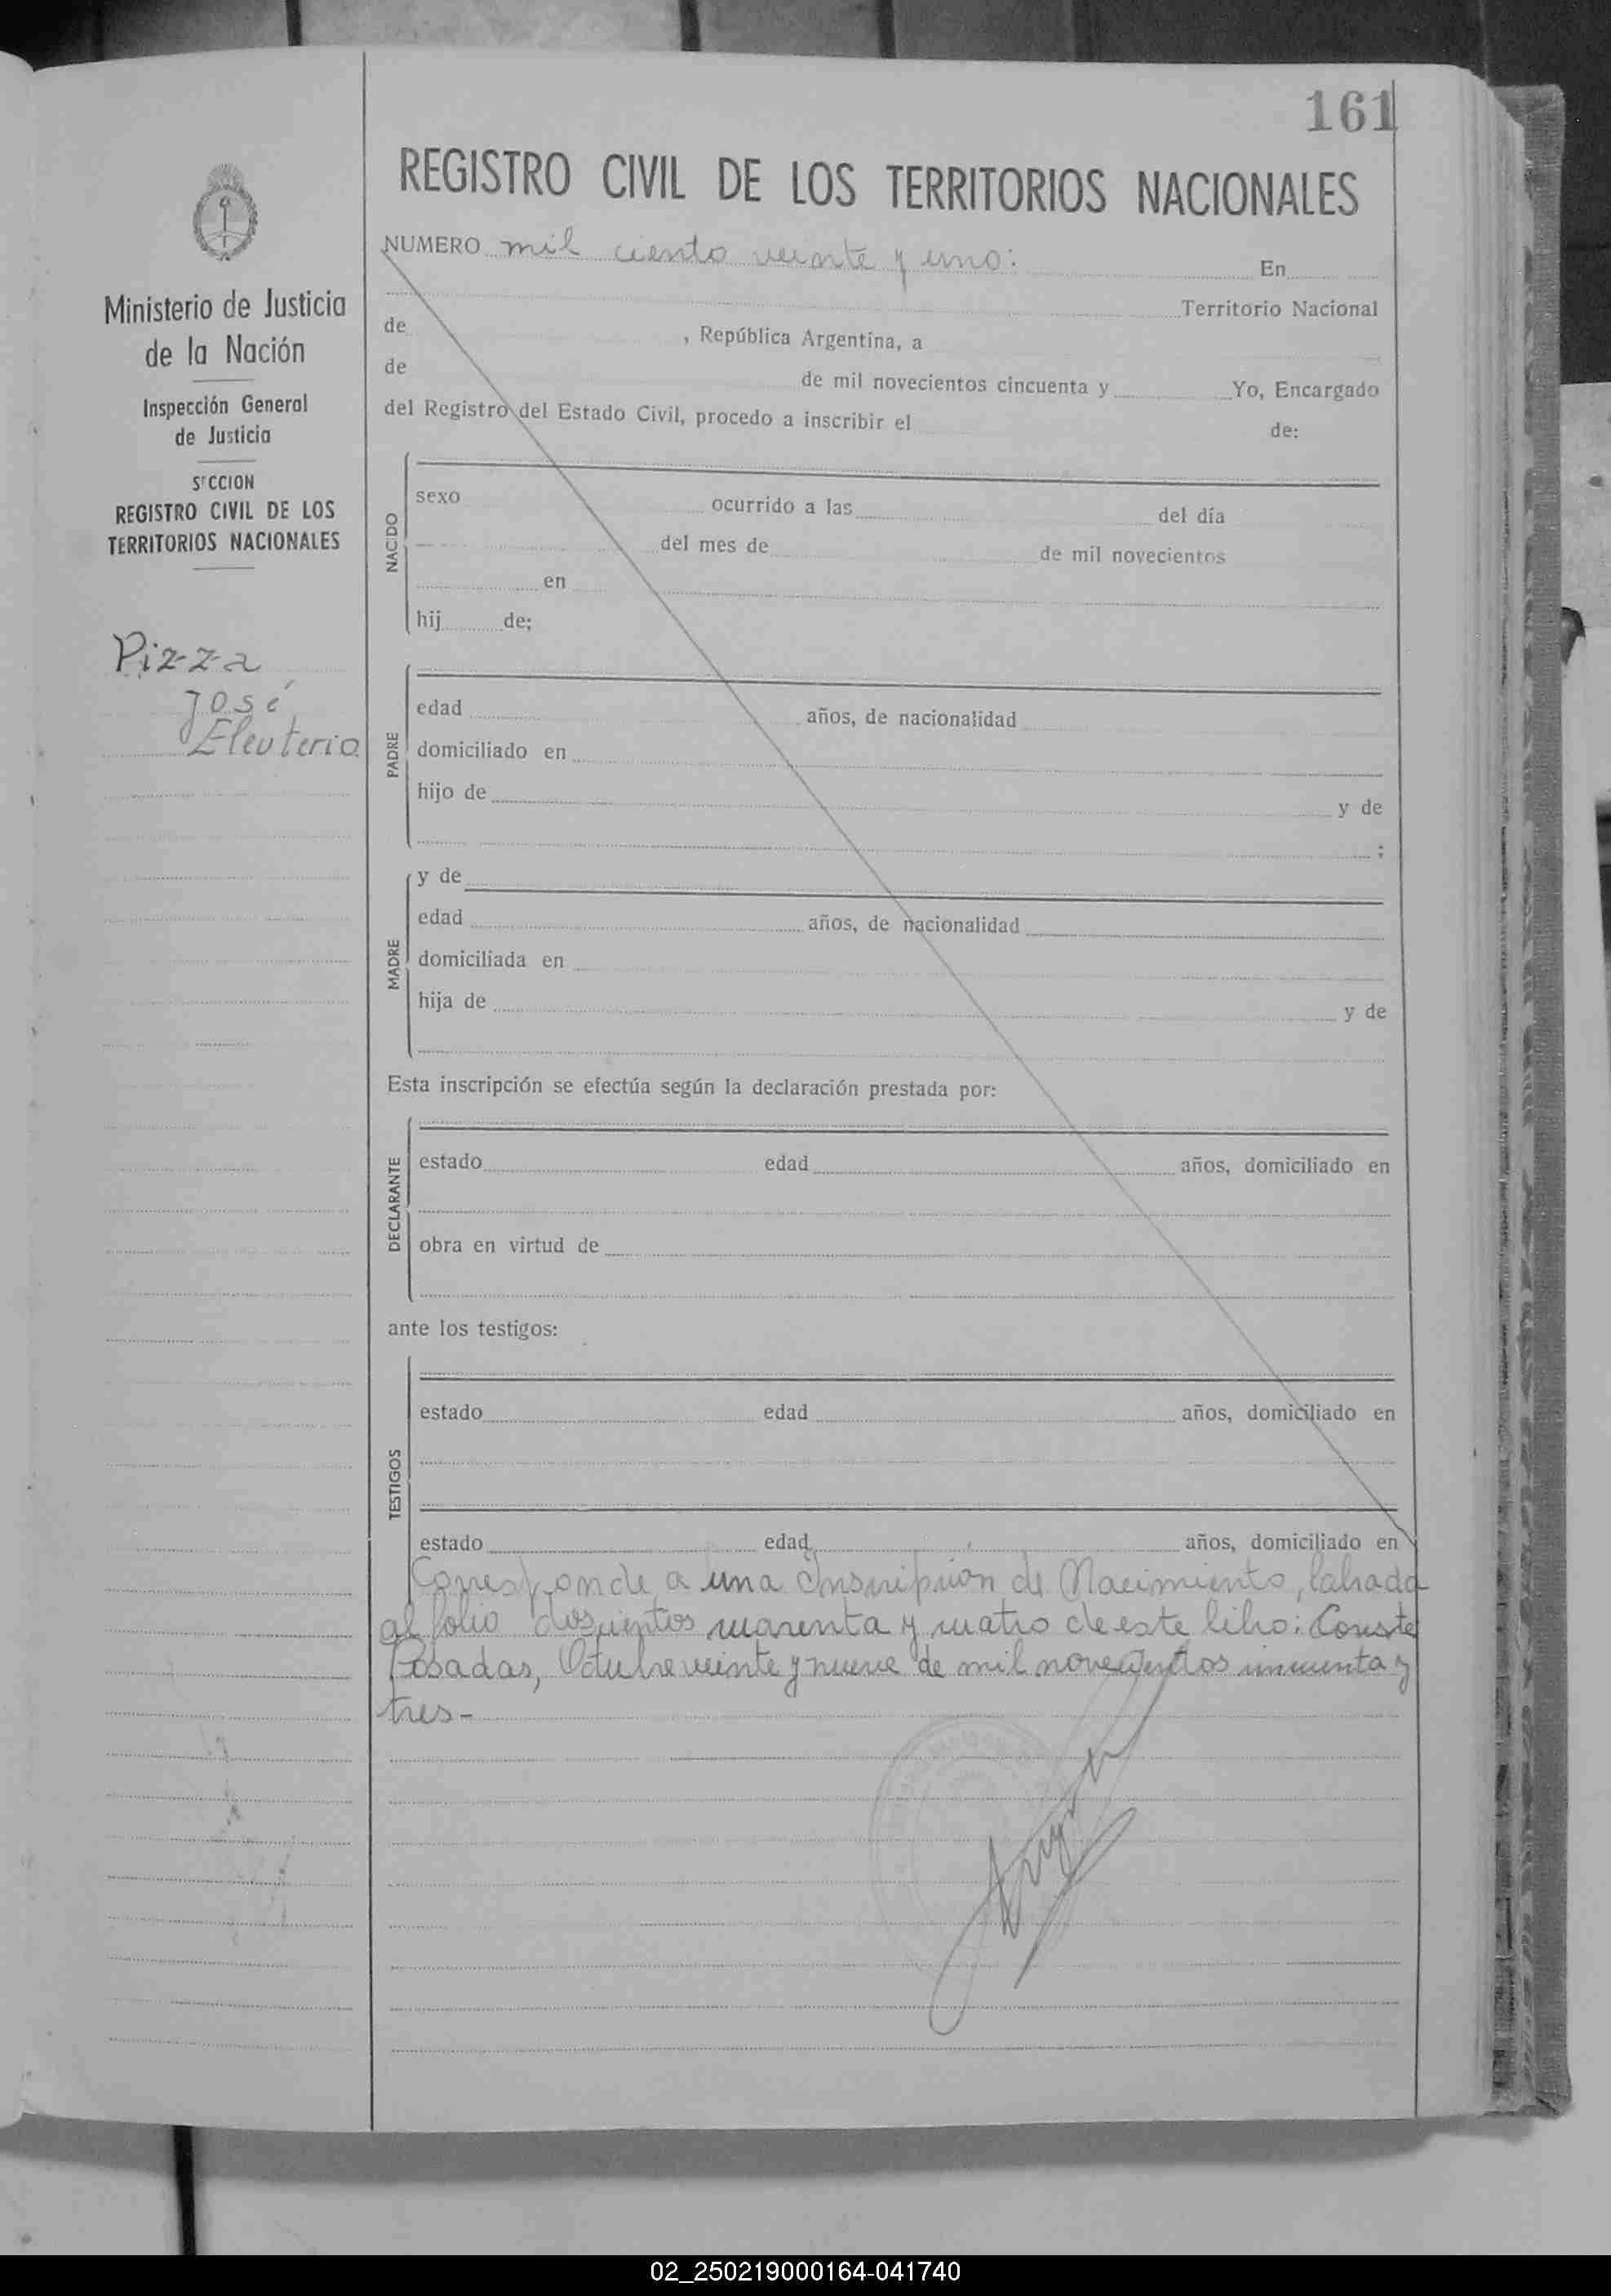 161
REGISTRO CIVIL DE LOS TERRITORIOS NACIONALES
NUMERO mil ciento veinte y uno: En
Territorio Nacional
de , República Argentina, a
de de mil novecientos cincuenta y Yo, Encargado
del Registro del Estado Civil, procedo a inscribir el de:
Ministerio de Justicia
de la Nación
Inspección General
de Justicia
SECCION
REGISTRO CIVIL DE LOS
TERRITORIOS NACIONALES
Pizza
José
Eleuterio
NACIDO
sexo ocurrido a las del día
del mes de de mil novecientos
en
hij de;
PADRE
edad años, de nacionalidad
domiciliado en
hijo de y de
;
MADRE
y de
edad años, de nacionalidad
domiciliada en
hija de y de
Esta inscripción se efectúa según la declaración prestada por:
DECLARANTE
estado edad años, domiciliado en
obra en virtud de
ante los testigos:
TESTIGOS
estado edad años, domiciliado en
estado edad años, domiciliado en
Corresponde a una Inscripción de Nacimiento, labrada
al folio doscientos cuarenta y cuatro de este libro: Conste
Posadas, Octubre veinte y nueve de mil novecientos cincuenta y
tres-
02_250219000164-041740